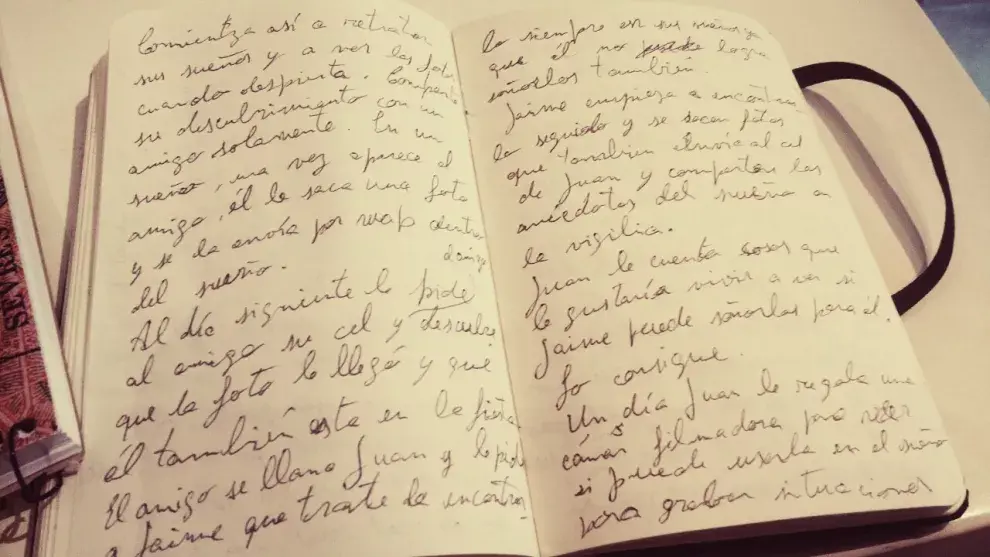 Comienza así a retratar
sus sueños y a ver las fotos
cuando despierta. Comparte
su descubrimiento con un
amigo solamente. En un
sueño, una vez aparece el
amigo, él le saca una foto
y se la envía por wsap dentro
del sueño.
Al día siguiente le pide
al amigo su cel y descubre
que la foto le llegó y que
él también esta en la
El amigo se llama Juan y le pide
a Jaime que trate de encontrar
lo siempre en sus sueños ya
que él no logra
soñarlos también.
Jaime empieza a encontrar
lo seguido y se sacan fotos
que también envía al cel
de Juan y comparten las
anécdotas del sueño en
la vigilia.
Juan le cuenta cosas que
le gustaría vivir a ver si
Jaime puede soñarlas para él.
Lo consigue.
Un día Juan le regala una
cámara filmadora para ver
si puede usarla en el sueño
para grabar situaciones
SEARES